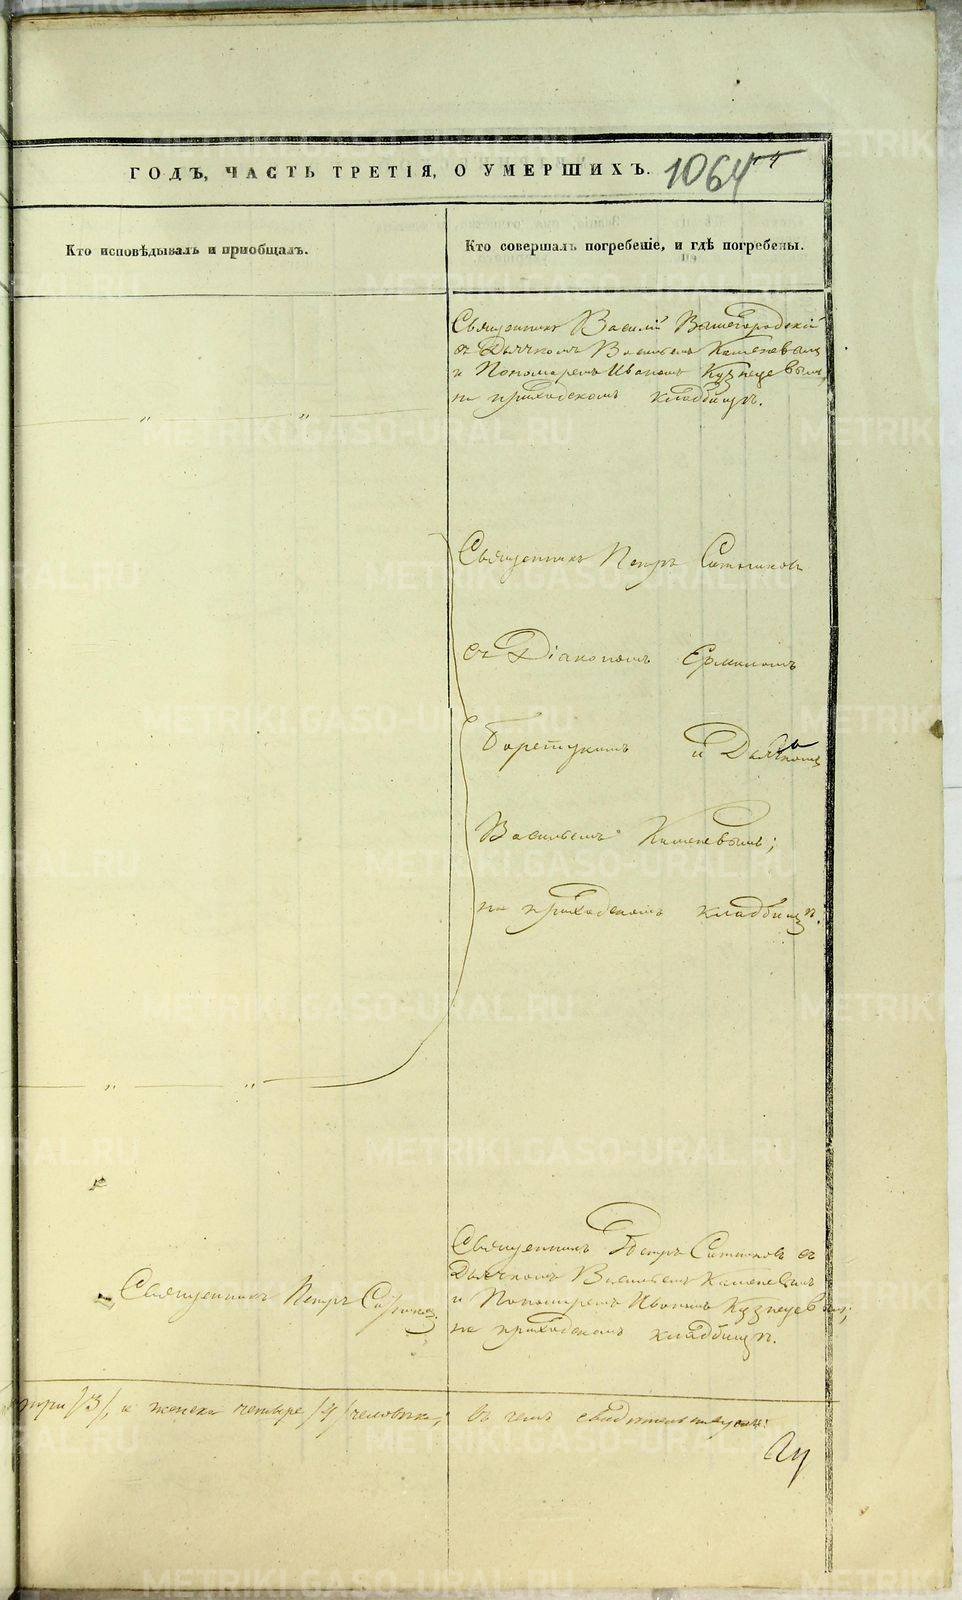 ГОДЪ, ЧАСТЬ ТРЕТІЯ, О УМЕРШИХЪ. 1064
Кто исповѣдывалъ и приобщалъ.
Кто совершалъ погребеніе, и гдѣ погребены.
Священникъ Василій Вышегородскій
съ Дьячкомъ Васильемъ Каменевымъ
и Пономаремъ Иваномъ Кузнецовымъ
на приходскомъ кладбищѣ.
Священникъ Петръ
съ Діакономъ Ермиломъ
и Дьячкомъ
Васильемъ Каменевымъ;
на приходскомъ кладбищѣ.
Священникъ Петръ
Священникъ Петръ съ
Дьячкомъ Васильемъ Каменевымъ
и Пономаремъ Иваномъ Кузнецовымъ;
на приходскомъ кладбищѣ.
три /3/, и женска четыре /4/ человѣка; въ чемъ свидѣтельствуемъ:
METRIKI.GASO-URAL.RU